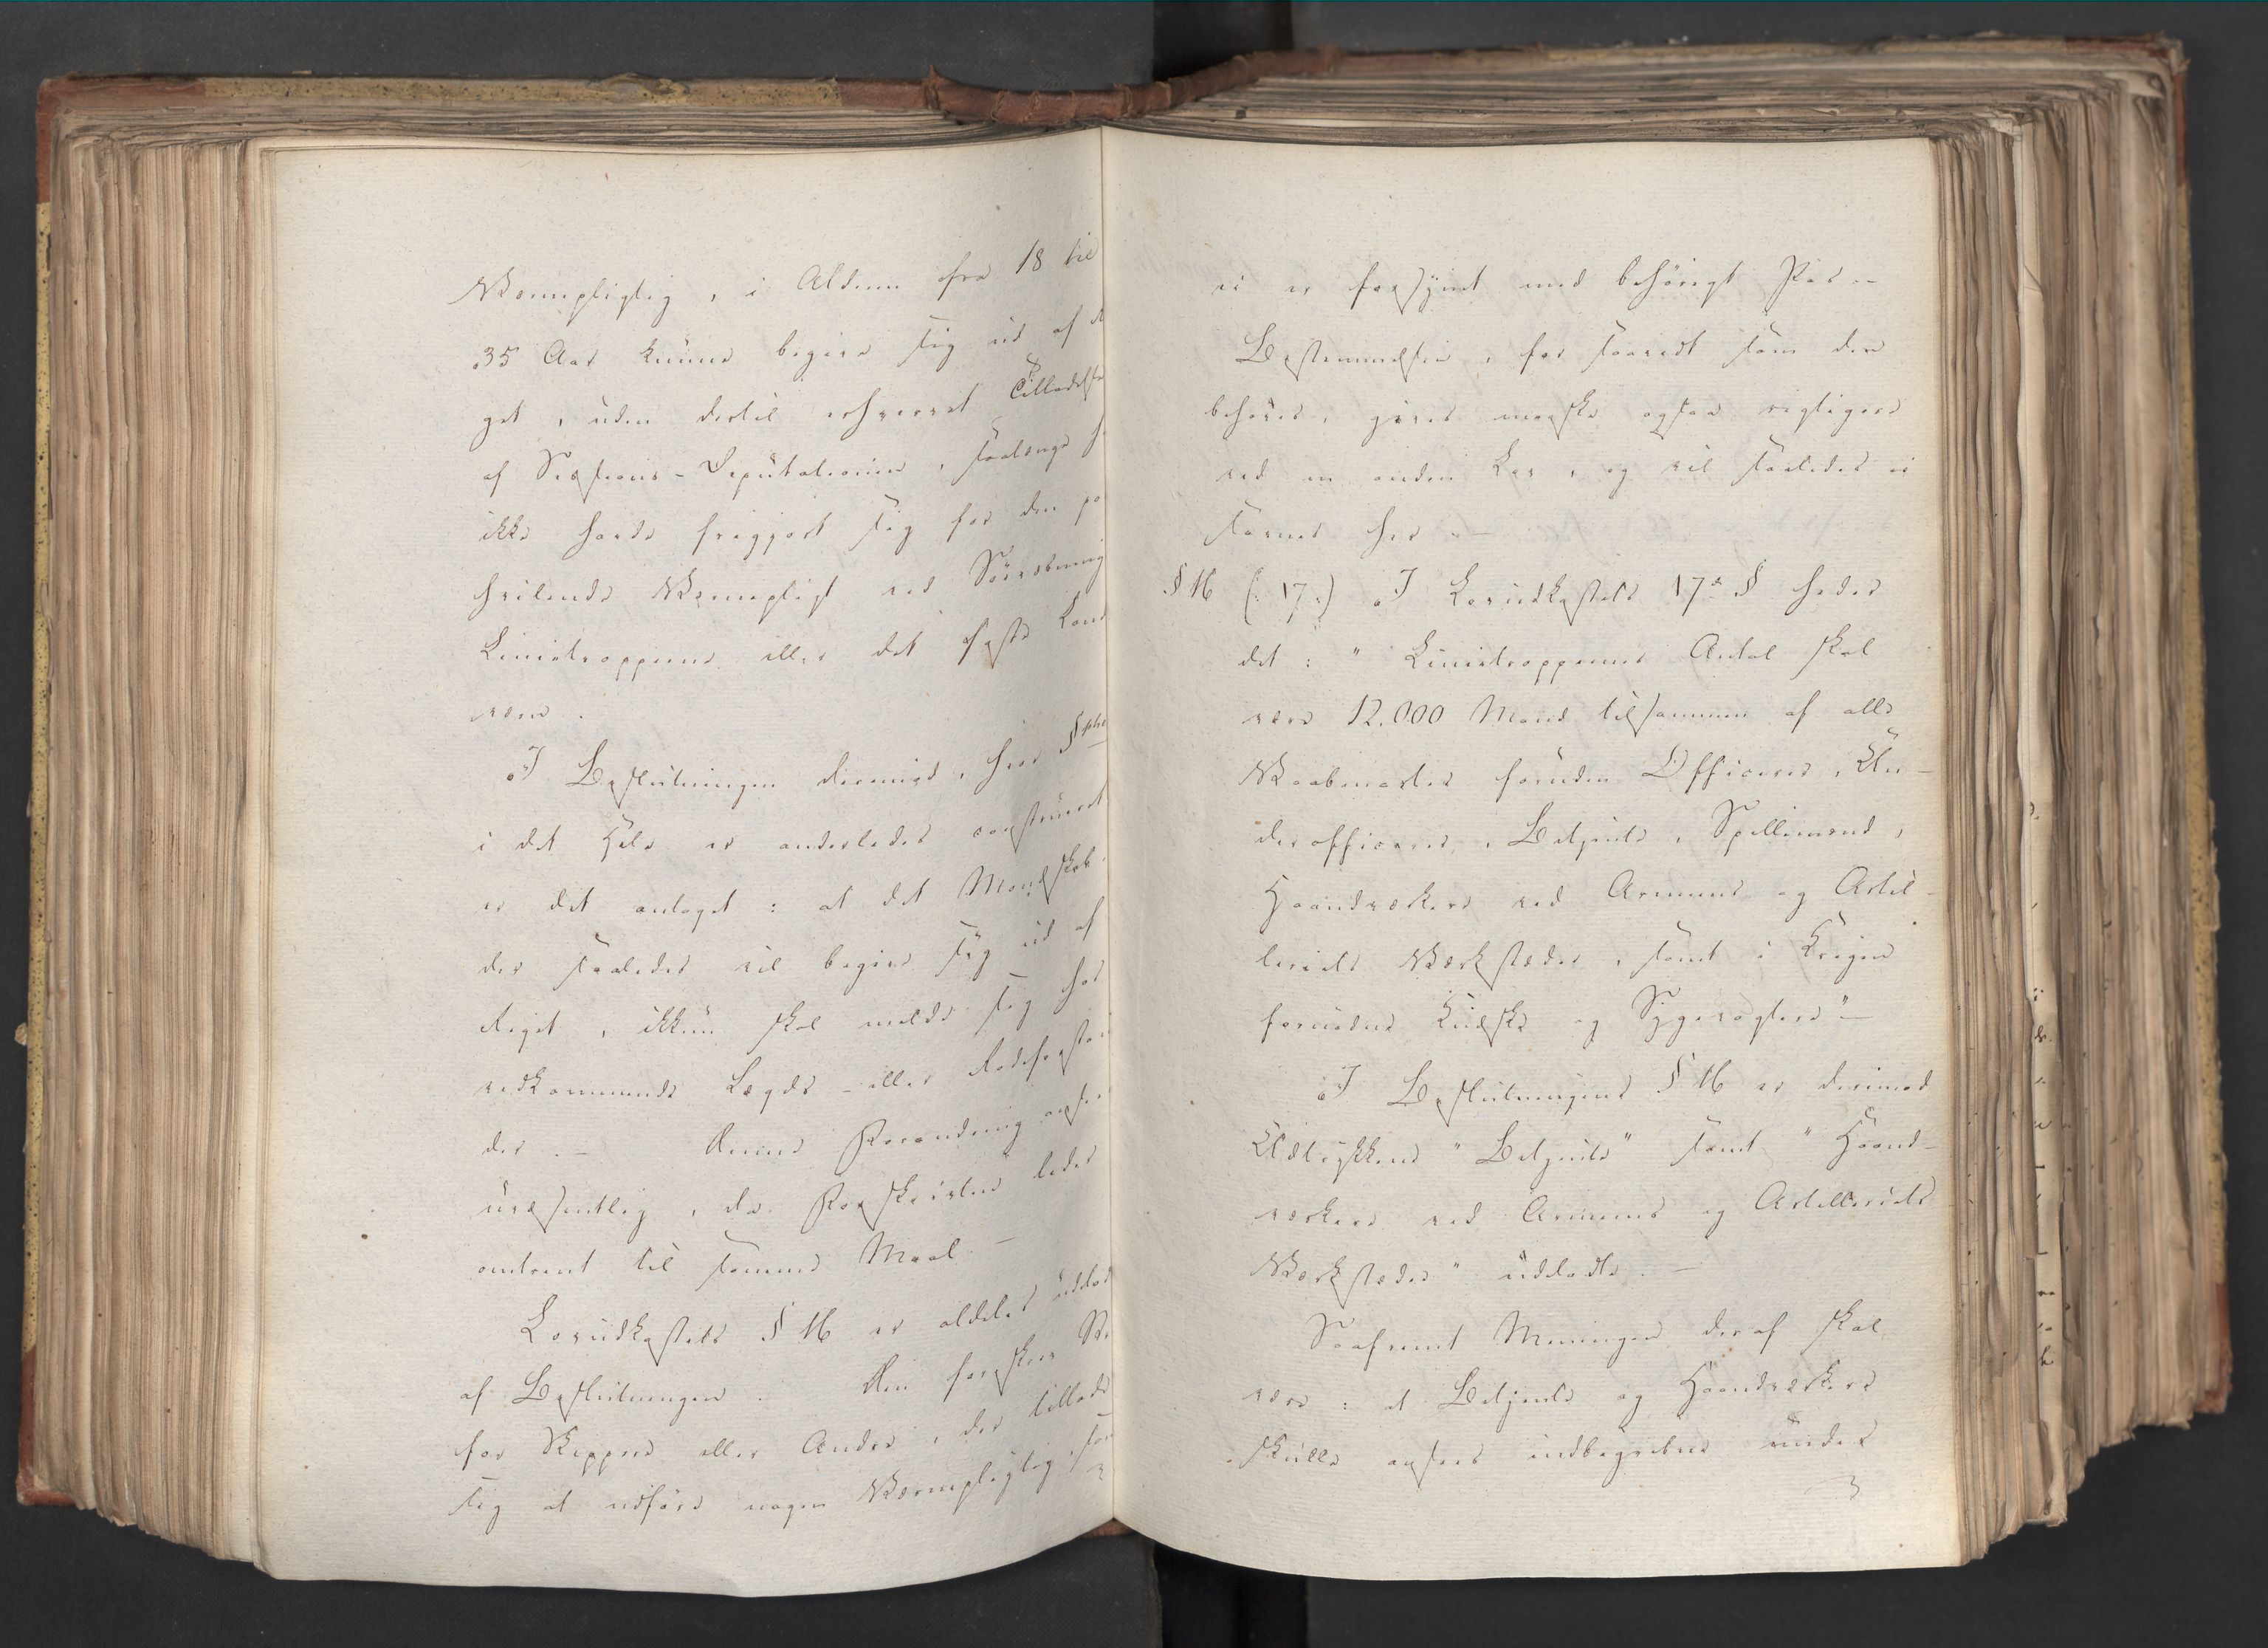 Værnepligtig, i Alderen fra 18 til
35 Aar kunne begive sig ud af
get, uden dertil erhvervet Tilladelse
af Sessions-Deputationen, saalænge
ikke havde frigjort sig for den paa
hvilende Værnepligt ved Søerøbning
Linietropperne eller det faste Land
værn.
I Beslutningen derimod, hvor §phen
i det Hele er anderledes construeret
er det antaget: at det Mandskab
der saaledes vil begive sig ud af
Riget, ikkun skal melde sig hos
vedkommende Lægds- eller Rodeforstan
der. – Denne Forandring ansees
uvæsentlig, da Forskrifterne leder
omtrent til samme Maal. –
Lovudkastets § 16 er aldeles udeladt
af Beslutningen. Den foreskrev
for Skippere eller Andre, der tillade
sig at udføre nogen Værnepligtig, som
ei er forsynet med behørigt Pas. –
Bestemmelsen, for saavidt som den
behøves, gives maaske ogsaa rigtigere
ved en anden Lov, og vil saaledes ei
savnes her. –
§ 16 (: 17 :) I Lovudkastets 17de § heder
det: "Linietroppernes Antal skal
være 12.000 Mand tilsammen af alle
Vaabenarter foruden Officerer, Un-
derofficerer, Betjente, Spillemænd,
Haandværkere ved Armeens og Artil-
leriets Værksteder, samt i Krigen
fornødne Kudske og Sygevogtere" –
I Beslutningens § 16 er derimod
Udtrykkene "Betjente" samt "Haand-
værkere ved Armeens og Artilleriets
Værksteder" udeladte. –
Saafremt Meningen deraf skal
være: at Betjente og Haandværkere
skulle ansees indbegrebne under